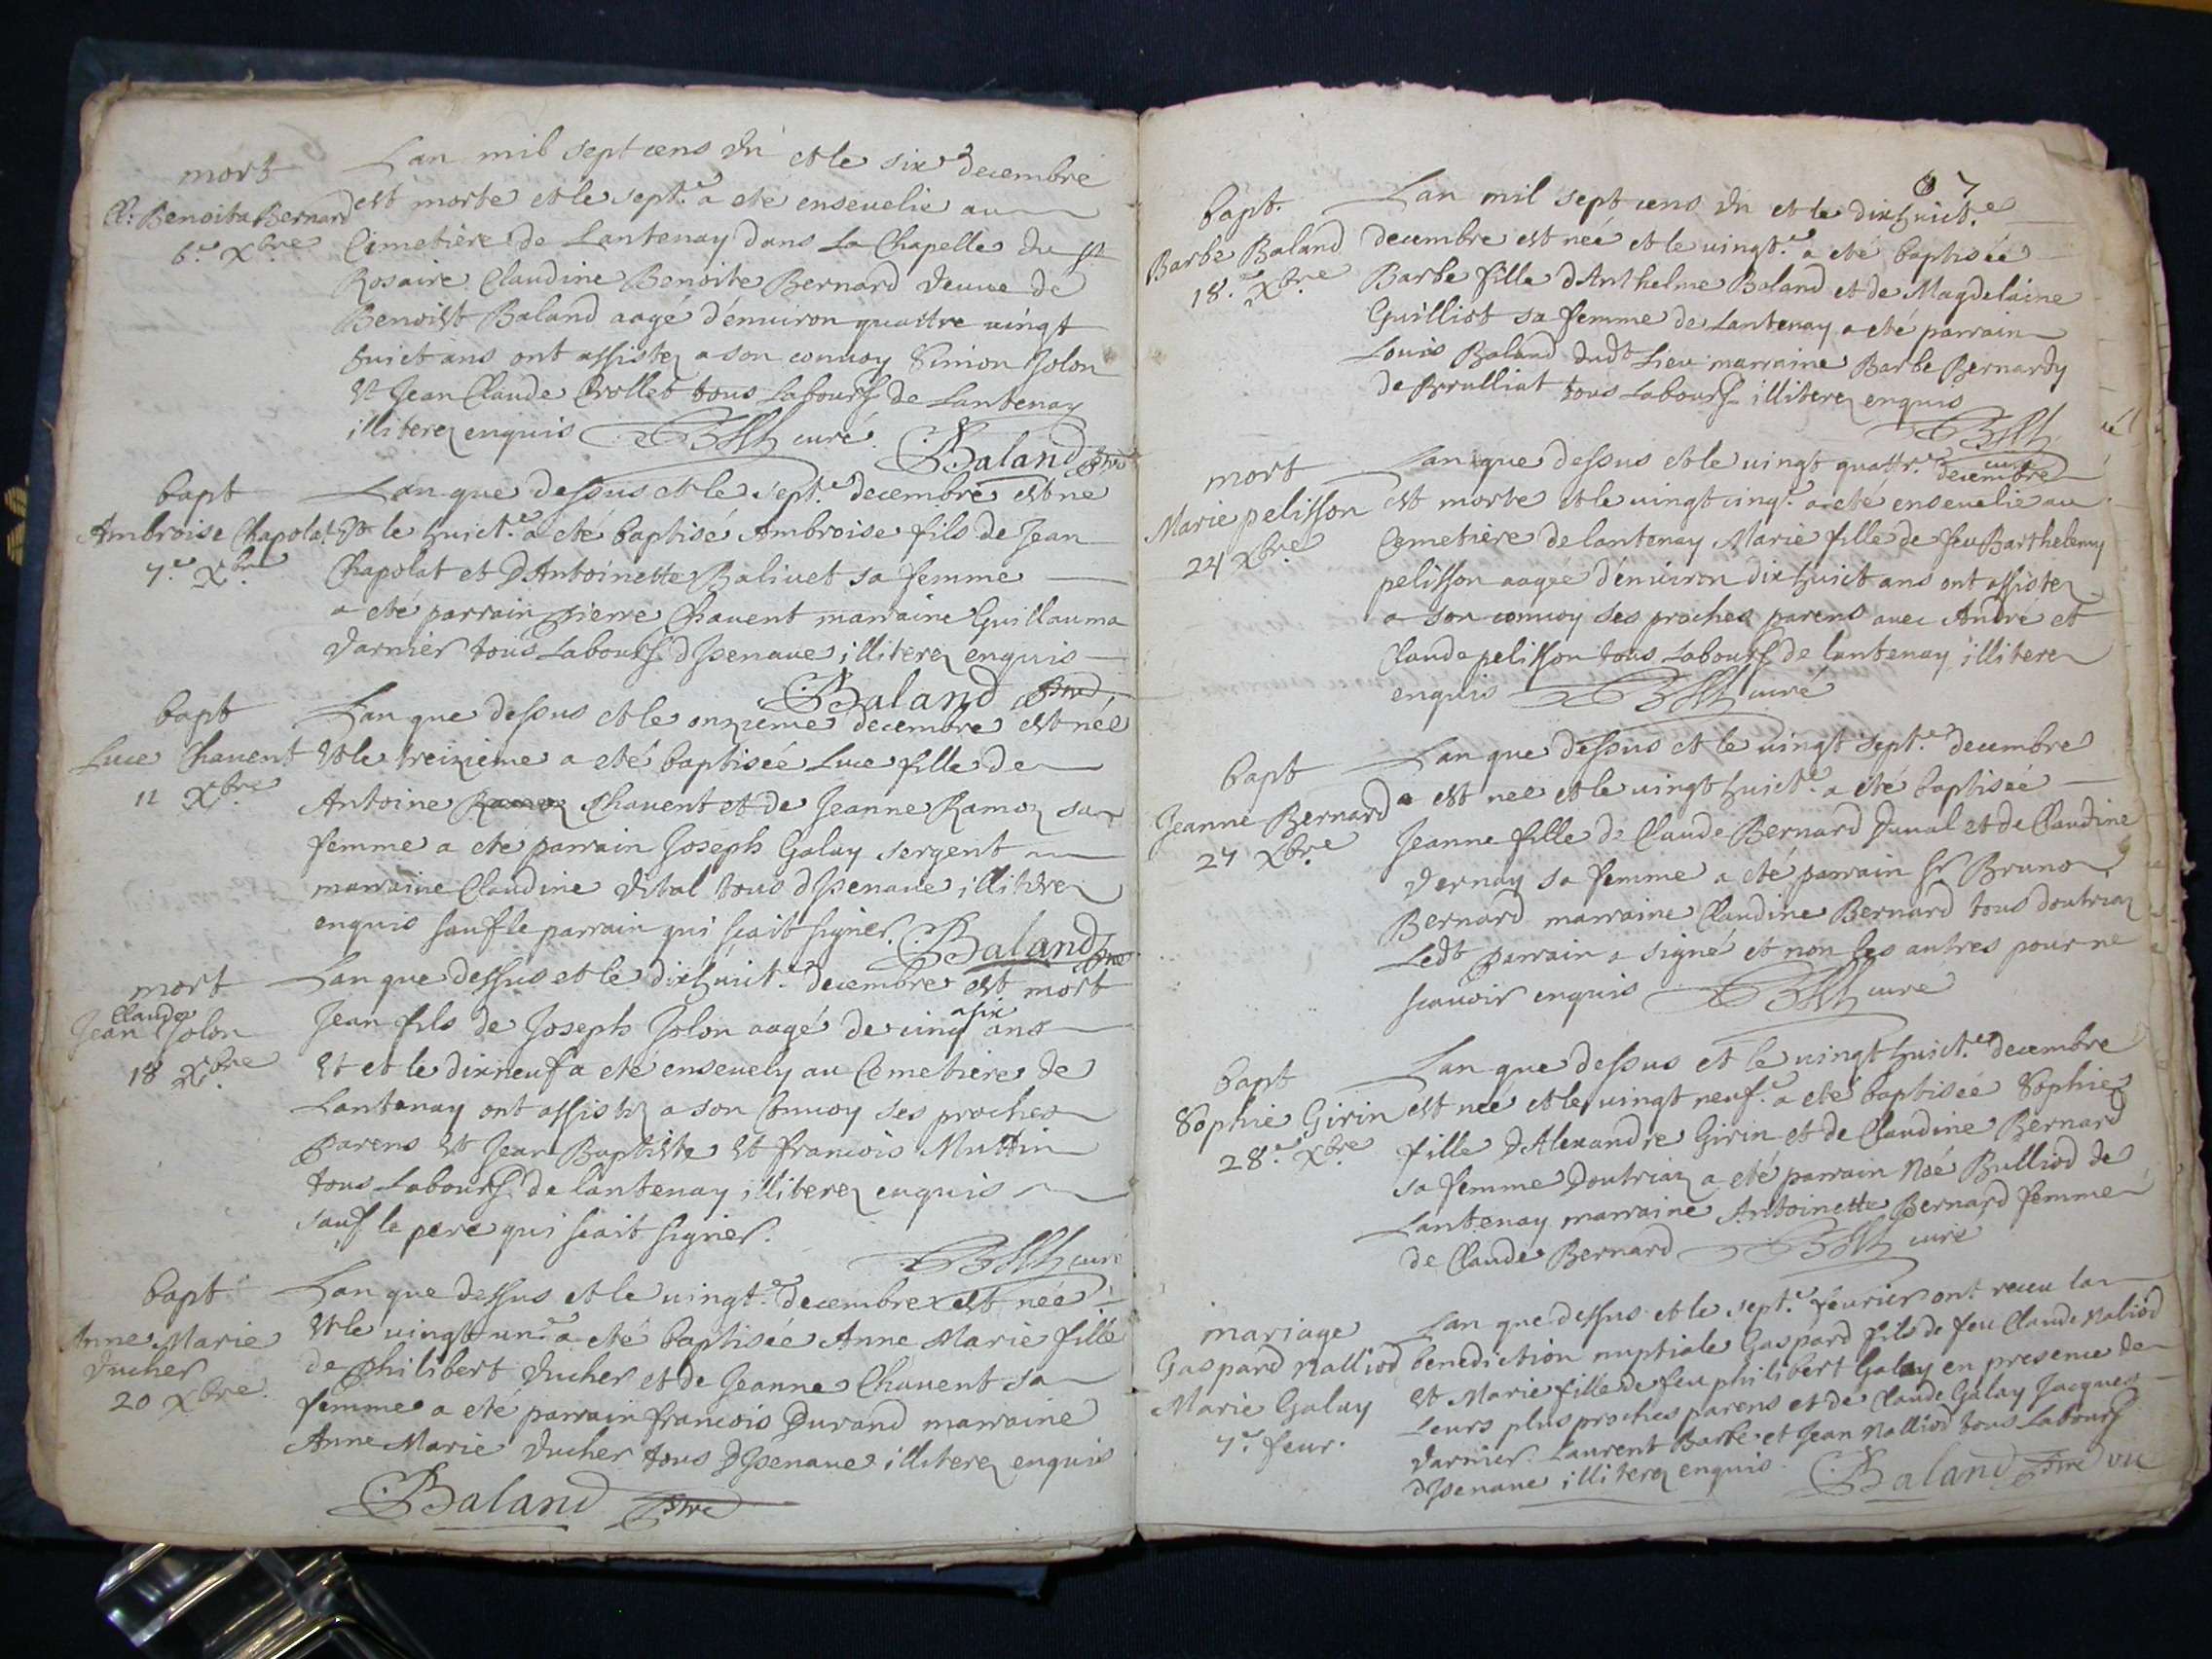 mort
Cl: Benoita Bernard
6.e Xbre
Lan mil sept cens Un et le six decembre
est morte et le sept.e a eté enseuelie au
Cimetière de Lantenay dans La Chapelle du St
Rosaire Claudine Benoite Bernard Veuue de
Benoist Baland aagé d'enuiron quattre uingt
huict ans ont assistez a son conuoy Simon Jolon
Et Jean Claude Crollet tous Labours de Lantenay
illiterez enquis curé. Baland pbre
bapt
Ambroise Chapolat
7.e Xbre
Lan que dessus et le sept.e decembre est ne
Et le huict.e a eté baptisé Ambroise fils de Jean
Chapolat et D'Antoinette Baliuet sa femme
a eté parrain pierre Chauent marraine Guillauma
Varnier tous Labours d'Jsenaue illiterez enquis
Baland pbre
bapt
Luce Chauent
11 Xbre
Lan que dessus et le onzieme decembre est née
Et le treizieme a eté baptisée Luce fille de
Antoine Chauent et de Jeanne Ramoz sa
femme a eté parrain Joseph Galay sergent
marraine Claudine Vital tous d'Jsenaue illiterez
enquis sauf le parrain qui scait signer. Baland pbre
mort
Claude
Jean Jolon
18 Xbre
Lan que dessus et le dixhuict.e decembre est mort
Jean fils de Joseph Jolon aagé de cinq a six ans
Et et le dixneuf a eté enseuely au Cemetiere de
Lantenay ont assistez a son Conuoy ses proches
Parens Et Jean Baptiste Et francois Muttin
tous Labours de lantenay illiterez enquis
sauf le pere qui scait signer.
curé
bapt
Anne Marie
Ducher
20 Xbre.
Lan que dessus et le uingt.e decembre est née
Et le uingt un.e a eté baptisée Anne Marie fille
de Philibert Ducher et de Jeanne Chauent sa
femme a eté parrain francois Durand marraine
Anne Marie Ducher tous D'Jsenaue illiterez enquis
Baland pbre
7
bapt.
Barbe Baland
18.e Xbre
Lan mil sept cens Un et le dixhuict.e
decembre est neé et le uingt.e a eté baptisée
Barbe fille d'Anthelme Baland et de Magdelaine
Guilliot sa femme de Lantenay a eté parrain
Louis Baland dudt Lieu marraine Barbe Bernardy
de Brulliat tous Labours illiterez enquis
curé
mort
Marie pelisson
24 Xbre
Lan que dessus et le uingt quattr.e decembre
est morte et le uingt cinq.e a eté enseuelie au
Cemetiere de lantenay Marie fille de feu Barthelemy
pelisson aageé d'enuiron dixhuict ans ont assistez
a son conuoy ses proches parens auec André et
Claude pelisson tous Labours de lantenay illiterez
enquis curé
bapt
Jeanne Bernard
27 Xbre
Lan que dessus et le uingt sept.e decembre
est neé et le uingt huict.e a eté baptisée
Jeanne fille de Claude Bernard Duual et de Claudine
Vernay sa femme a eté parrain Sr Bruno
Bernard marraine Claudine Bernard tous doutriaz
Ledt Parrain a signé et non les autres pour ne
scauoir enquis curé
bapt
Sophie Girin
28.e Xbre
Lan que dessus et le uingt huict.e decembre
est neé et le uingt neuf.e a eté baptisée Sophie
fille D'Alexandre Girin et de Claudine Bernard
sa femme Doutriaz a eté parrain Noé Bulliod de
Lantenay marraine Antoinette Bernard femme
de Claude Bernard curé
mariage
Gaspard Nalliod
Marie Galay
7.e feur.
Lan que dessus et le sept.e feurier ont receu la
benediction nuptiale Gaspard fils de feu Claude Naliod
Et Marie fille de feu philibert Galay en presence de
Leurs plus proches parens et de Claude Galay Jacques
Varnier Laurent Barbe et Jean Nalliod tous Labours
d'Jsenaue illiterez enquis. Baland pbre vic